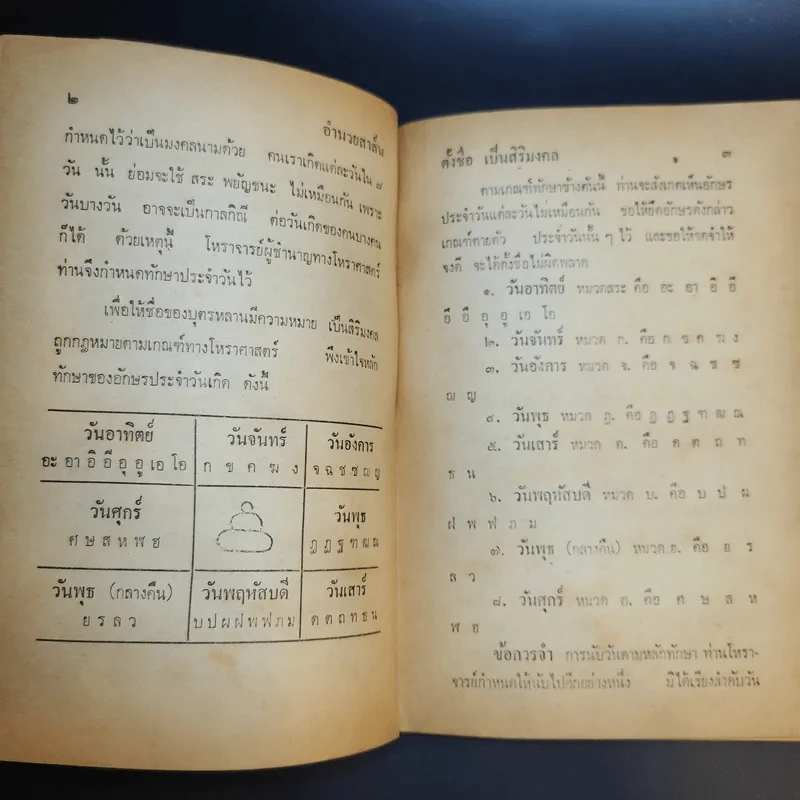 ๒
อำนวยสาส์น
กำหนดไว้ว่าเป็นมงคลนามด้วย คนเราเกิดแต่ละวันใน ๗
วัน นั้น ย่อมจะใช้ สระ พยัญชนะ ไม่เหมือนกัน เพราะ
วันบางวัน อาจจะเป็นกาลกิณี ต่อวันเกิดของคนบางคน
ก็ได้ ด้วยเหตุนี้ โหราจารย์ผู้ชำนาญทางโหราศาสตร์
ท่านจึงกำหนดทักษาประจำวันไว้
เพื่อให้ชื่อของบุตรหลานมีความหมาย เป็นสิริมงคล
ถูกกฎหมายตามเกณฑ์ทางโหราศาสตร์ พึงเข้าใจหลัก
ทักษาของอักษรประจำวันเกิด ดังนี้
วันอาทิตย์ วันจันทร์ วันอังคาร
อะ อา อิ อี อุ อู เอ โอ ก ข ค ฆ ง จ ฉ ช ซ ฌ ญ
วันศุกร์ วันพุธ
ศ ษ ส ห ฬ ฮ ฎ ฏ ฐ ฑ ฒ ณ
วันพุธ (กลางคืน) วันพฤหัสบดี วันเสาร์
ย ร ล ว บ ป ผ ฝ พ ฟ ภ ม ด ต ถ ท ธ น
ตั้งชื่อ เป็นสิริมงคล ๓
ตามเกณฑ์ทักษาข้างต้นนี้ ท่านจะสังเกตเห็นอักษร
ประจำวันแต่ละวันไม่เหมือนกัน ขอให้ยึดอักษรดังกล่าว
เกณฑ์ตายตัว ประจำวันนั้น ๆ ไว้ และขอให้จดจำให้
จงดี จะได้ตั้งชื่อไม่ผิดพลาด
๑. วันอาทิตย์ หมวดสระ คือ อะ อา อิ อี
อึ อื อุ อู เอ โอ
๒. วันจันทร์ หมวด ก. คือ ก ข ค ฆ ง
๓. วันอังคาร หมวด จ. คือ จ ฉ ช ซ
ฌ ญ
๔. วันพุธ หมวด ฎ. คือ ฎ ฏ ฐ ฑ ฒ ณ
๕. วันเสาร์ หมวด ด. คือ ด ต ถ ท
ธ น
๖. วันพฤหัสบดี หมวด บ. คือ บ ป ผ
ฝ พ ฟ ภ ม
๗. วันพุธ (กลางคืน) หมวด ย. คือ ย ร
ล ว
๘. วันศุกร์ หมวด ศ. คือ ศ ษ ส ห
ฬ ฮ
ข้อควรจำ การนับวันตามหลักทักษา ท่านโหรา-
จารย์กำหนดให้นับไปอีกอย่างหนึ่ง มิได้เรียงลำดับวัน